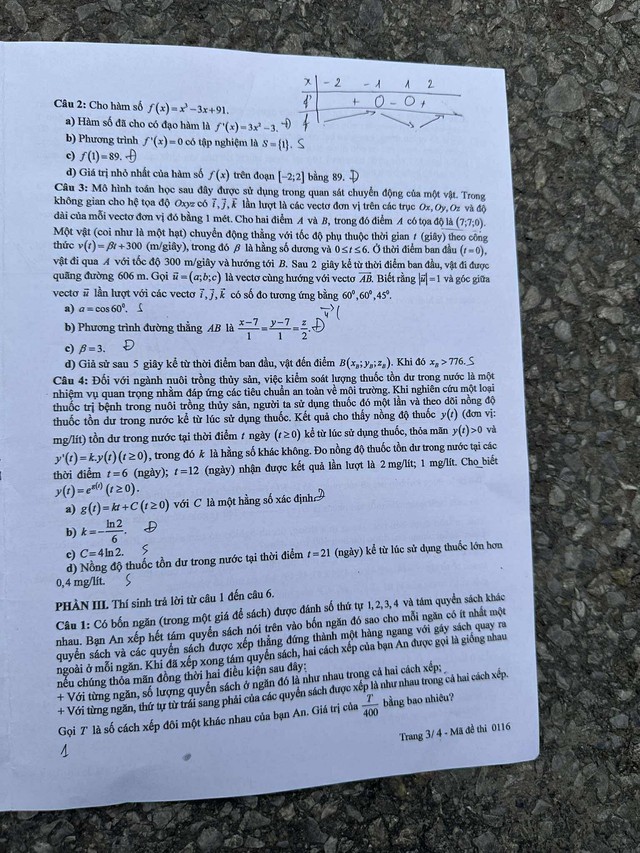 x | -2 -1 1 2
Câu 2: Cho hàm số f(x) = x³ −3x+91.
f' | + 0 - 0 +
a) Hàm số đã cho có đạo hàm là f '(x) = 3x² −3. Đ
f
b) Phương trình f '(x) = 0 có tập nghiệm là S = {1}. S
c) f(1) = 89. Đ
d) Giá trị nhỏ nhất của hàm số f(x) trên đoạn [−2;2] bằng 89. Đ
Câu 3: Mô hình toán học sau đây được sử dụng trong quan sát chuyển động của một vật. Trong
không gian cho hệ tọa độ Oxyz có i⃗, j⃗, k⃗ lần lượt là các vectơ đơn vị trên các trục Ox, Oy, Oz và độ
dài của mỗi vectơ đơn vị đó bằng 1 mét. Cho hai điểm A và B, trong đó điểm A có tọa độ là (7;7;0).
Một vật (coi như là một hạt) chuyển động thẳng với tốc độ phụ thuộc thời gian t (giây) theo công
thức v(t) = βt +300 (m/giây), trong đó β là hằng số dương và 0 ≤ t ≤ 6. Ở thời điểm ban đầu (t = 0),
vật đi qua A với tốc độ 300 m/giây và hướng tới B. Sau 2 giây kể từ thời điểm ban đầu, vật đi được
quãng đường 606 m. Gọi u⃗ = (a;b;c) là vectơ cùng hướng với vectơ AB⃗. Biết rằng |u⃗| = 1 và góc giữa
vectơ u⃗ lần lượt với các vectơ i⃗, j⃗, k⃗ có số đo tương ứng bằng 60⁰, 60⁰, 45⁰.
a) a = cos60⁰. S
b) Phương trình đường thẳng AB là (x−7)/1 = (y−7)/1 = z/2. Đ
c) β = 3. Đ
d) Giả sử sau 5 giây kể từ thời điểm ban đầu, vật đến điểm B(x_B; y_B; z_B). Khi đó x_B > 776. S
Câu 4: Đối với ngành nuôi trồng thủy sản, việc kiểm soát lượng thuốc tồn dư trong nước là một
nhiệm vụ quan trọng nhằm đáp ứng các tiêu chuẩn an toàn về môi trường. Khi nghiên cứu một loại
thuốc trị bệnh trong nuôi trồng thủy sản, người ta sử dụng thuốc đó một lần và theo dõi nồng độ
thuốc tồn dư trong nước kể từ lúc sử dụng thuốc. Kết quả cho thấy nồng độ thuốc y(t) (đơn vị:
mg/lít) tồn dư trong nước tại thời điểm t ngày (t ≥ 0) kể từ lúc sử dụng thuốc, thỏa mãn y(t) > 0 và
y'(t) = k.y(t) (t ≥ 0), trong đó k là hằng số khác không. Đo nồng độ thuốc tồn dư trong nước tại các
thời điểm t = 6 (ngày); t = 12 (ngày) nhận được kết quả lần lượt là 2 mg/lít; 1 mg/lít. Cho biết
y(t) = e^g(t) (t ≥ 0).
a) g(t) = kt + C (t ≥ 0) với C là một hằng số xác định. Đ
b) k = −ln2/6. Đ
c) C = 4ln2. S
d) Nồng độ thuốc tồn dư trong nước tại thời điểm t = 21 (ngày) kể từ lúc sử dụng thuốc lớn hơn
0,4 mg/lít. S
PHẦN III. Thí sinh trả lời từ câu 1 đến câu 6.
Câu 1: Có bốn ngăn (trong một giá để sách) được đánh số thứ tự 1, 2, 3, 4 và tám quyển sách khác
nhau. Bạn An xếp hết tám quyển sách nói trên vào bốn ngăn đó sao cho mỗi ngăn có ít nhất một
quyển sách và các quyển sách được xếp thẳng đứng thành một hàng ngang với gáy sách quay ra
ngoài ở mỗi ngăn. Khi đã xếp xong tám quyển sách, hai cách xếp của bạn An được gọi là giống nhau
nếu chúng thỏa mãn đồng thời hai điều kiện sau đây:
+ Với từng ngăn, số lượng quyển sách ở ngăn đó là như nhau trong cả hai cách xếp;
+ Với từng ngăn, thứ tự từ trái sang phải của các quyển sách được xếp là như nhau trong cả hai cách xếp.
Gọi T là số cách xếp đôi một khác nhau của bạn An. Giá trị của T/400 bằng bao nhiêu?
1
Trang 3/ 4 - Mã đề thi 0116